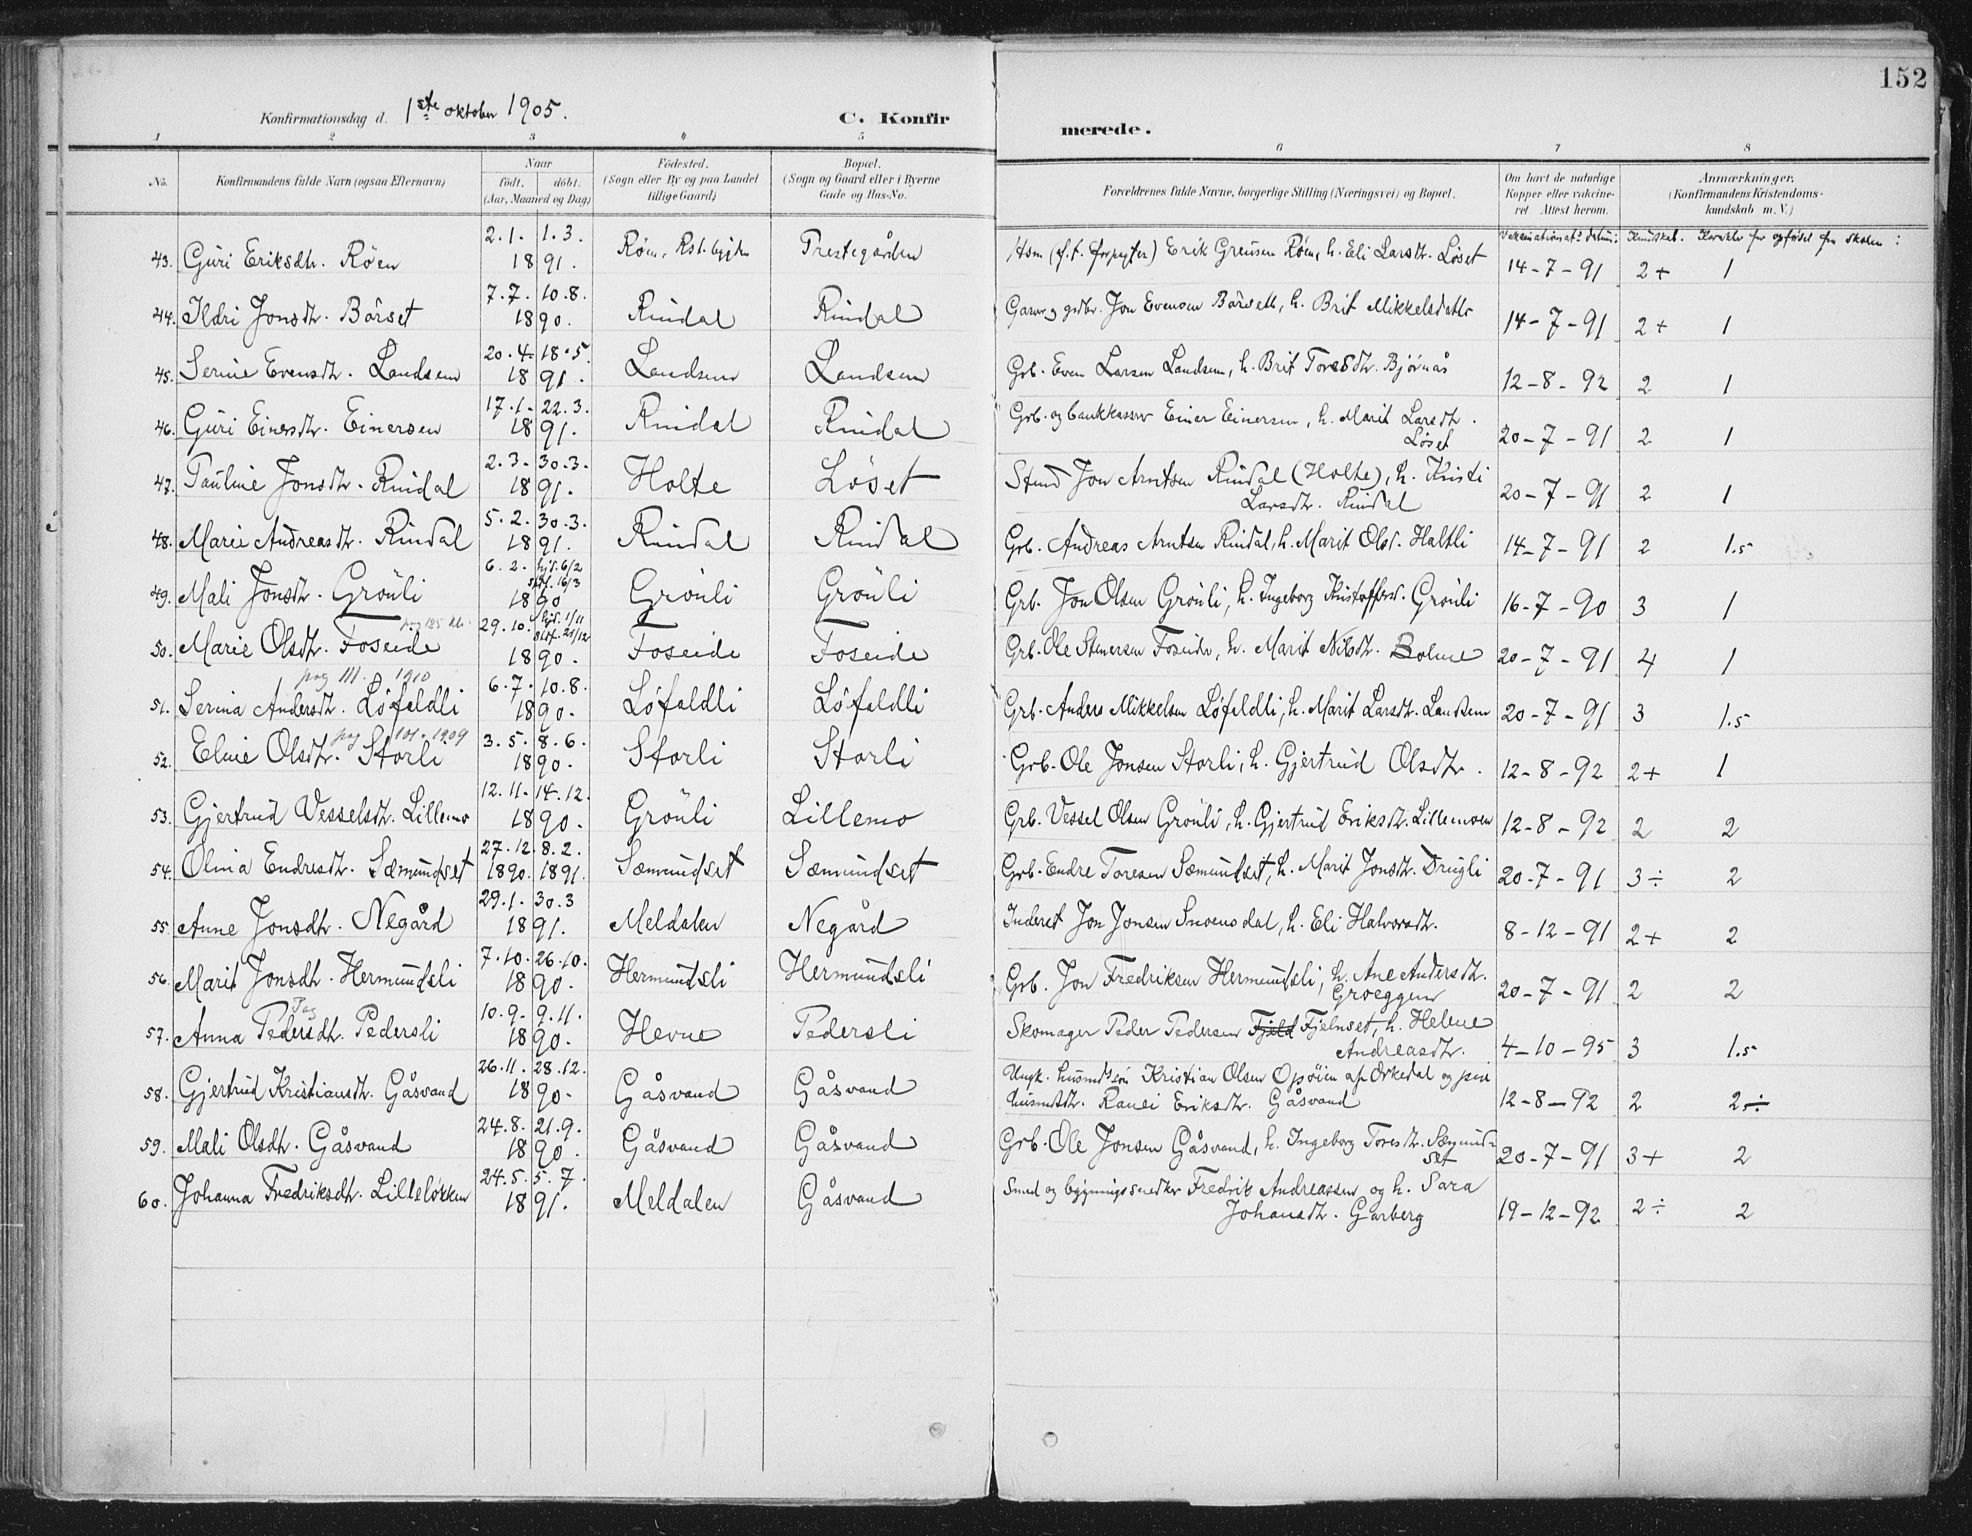 152
Konfirmationsdag d. 1ste oktober 1905.
C. Konfirmerede.
1 2 3 4 5 6 7 8
No. Konfirmandens fulde Navn (ogsaa Efternavn) Naar født. døbt. (Aar, Maaned og Dag) Fødested. (Sogn eller By og paa Landet tillige Gaard) Bopæl. (Sogn og Gaard eller i Byerne Gade og Hus-No. Forældrenes fulde Navne, borgerlige Stilling (Næringsvei) og Bopæl. Om havt de naturlige Kopper eller vakcineret Attest herom. Anmærkninger. (Konfirmandens Kristendomskundskab m. V.)
Vaccinationat: datum: Kundskab. Karakter for opførsel fra skolen:
43. Guri Eriksdtr. Röen 2.1. 1.3. 1891. Röen, Rst.bygden Prestegården Hsm (f.t. forpagter) Erik Greusen Röen, h. Eli Larsdtr. Löset 14-7-91 2+ 1
44. Ildri Jonsdtr. Börset 7.7. 10.8. 1890. Rindal Rindal Garver og grdbr. Jon Evensen Börsett, h. Brit Mikkelsdatter 14-7-91 2+ 1
45. Serine Evensdtr. Landsem 20.4. 18.5. 1891. Landsem Landsem Grb. Even Larsen Landsem, h. Brit Toresdtr. Bjørnås 12-8-92 2 1
46. Guri Einersdtr. Einersen 17.1. 22.3. 1891. Rindal Rindal Grb. og bankkasserer Einer Einersen, h. Marit Larsdtr. Löset 20-7-91 2 1
47. Pauline Jonsdtr. Rindal 2.3. 30.3. 1891. Holte Löset Smed Jon Arntsen Rindal (Holte), h. Kristi Larsdtr. Rindal 20-7-91 2 1
48. Marie Andreasdtr. Rindal 5.2. 30.3. 1891. Rindal Rindal Grb. Andreas Arntsen Rindal, h. Marit Olsd. Haltli 14-7-91 2 1.5
49. Mali Jonsdtr. Grönli 6.2. hjd. 6/2 stf. 16/3 1890 Grönli Grönli Grb. Jon Olsen Grönli, h. Ingeborg Kristoffersd. Grönli 16-7-90 3 1
50. Marie Olsdtr. Foseide 29.10. hjd. 1/11 stf. 21/12 1890. Foseide Foseide Grb. Ole Stenersen Foseide, h. Marit Nilsdtr. Bolme 20-7-91 4 1
pag 111 1910
51. Serina Andersdtr. Löfaldli 6.7. 10.8. 1890. Löfaldli Löfaldli Grb. Anders Mikkelsen Löfaldli, h. Marit Larsdtr. Landsem 20-7-91 3 1.5
pag 101 1909
52. Eline Olsdtr. Storli 3.5. 8.6. 1890. Storli Storli Grb. Ole Jonsen Storli, h. Gjertrud Olsdtr. 12-8-92 2+ 1
53. Gjertrud Vesselsdtr. Lillemo 12.11. 14.12. 1890. Grönli Lillemo Grb. Vessel Olsen Grönli, h. Gjertrud Eriksdtr. Lillemoen 12-8-92 2 2
54. Olina Endresdtr. Sæmundset 27.12. 8.2. 1890. 1891. Sæmundset Sæmundset Grb. Endre Toresen Sæmundset, h. Marit Jonsdtr. Drugli 20-7-91 3÷ 2
55. Anne Jonsdtr. Negård 29.1. 30.3 1891. Meldalen Negård Inderst Jon Jonsen Snoensdal, h. Eli Halvorsdtr. 8-12-91 2+ 2
56. Marit Jonsdtr. Hermundsli 7.10. 26.10. 1890. Hermundsli Hermundsli Grb. Jon Fredriksen Hermundsli, h. Ane Andersdtr. Groeggen 20-7-91 2 2
Pag
57. Anna Pedersdtr. Pedersli 10.9. 9.11. 1890. Hevne Pedersli Skomager Peder Pedersen Fjeld Fjelnset, h. Helene Andreasdtr. 4-10-95 3 1.5
58. Gjertrud Kristiansdtr. Gåsvand 26.11. 28.12. 1890. Gåsvand Gåsvand Ungk. husmdsön Kristian Olsen Opöien af Orkedal og pen husmdtr. Ranei Eriksdtr. Gåsvand 12-8-92 2 2÷
59. Mali Olsdtr. Gåsvand 24.8. 21.9. 1890. Gåsvand Gåsvand Grb. Ole Jonsen Gåsvand, h. Ingeborg Toresdtr. Sæmundset 20-7-91 3+ 2
60. Johanna Fredriksdtr. Lillelökken 24.5. 5.7. 1891. Meldalen Gåsvand Smed og bygningssnedker Fredrik Andreassen og h. Sara Johansdtr. Garberg 19-12-92 2÷ 2